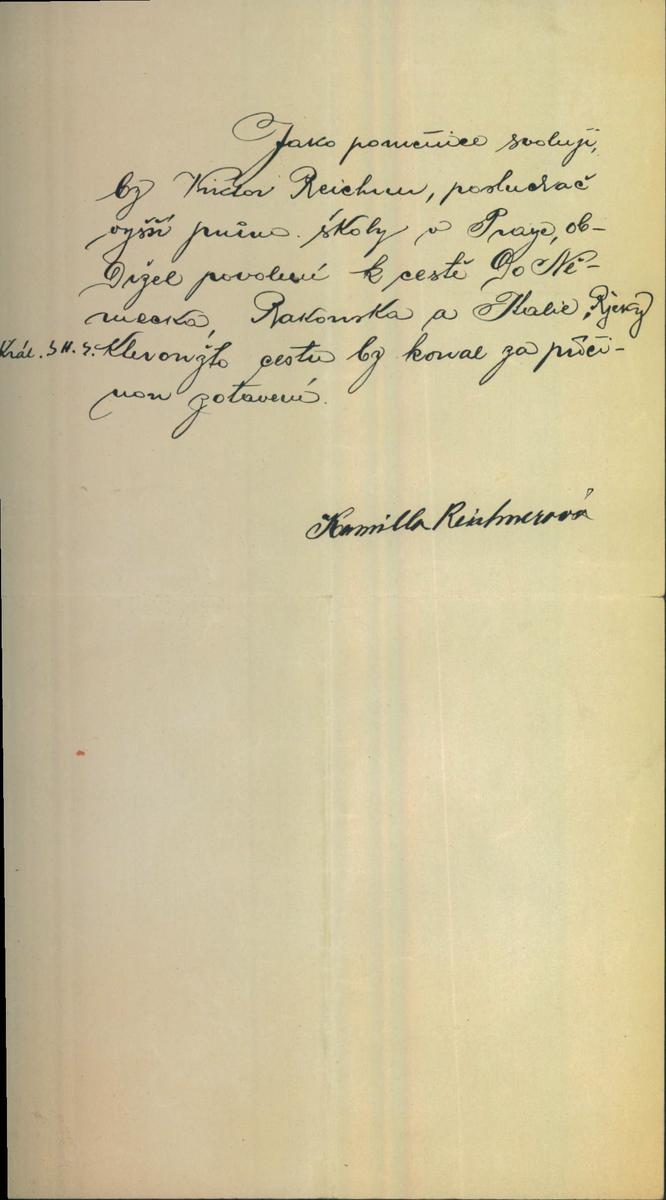 Jako poručnice svoluji,
by Viktor Reichner, posluchač
vyšší průmn. školy v Praze, ob-
držel povolení k cestě do Ně-
mecka, Rakouska a Italie, Rjeky
Král. S H. S. Kterou žto cestu by konal za příči-
nou zotavení.
Kamilla Reichnerová